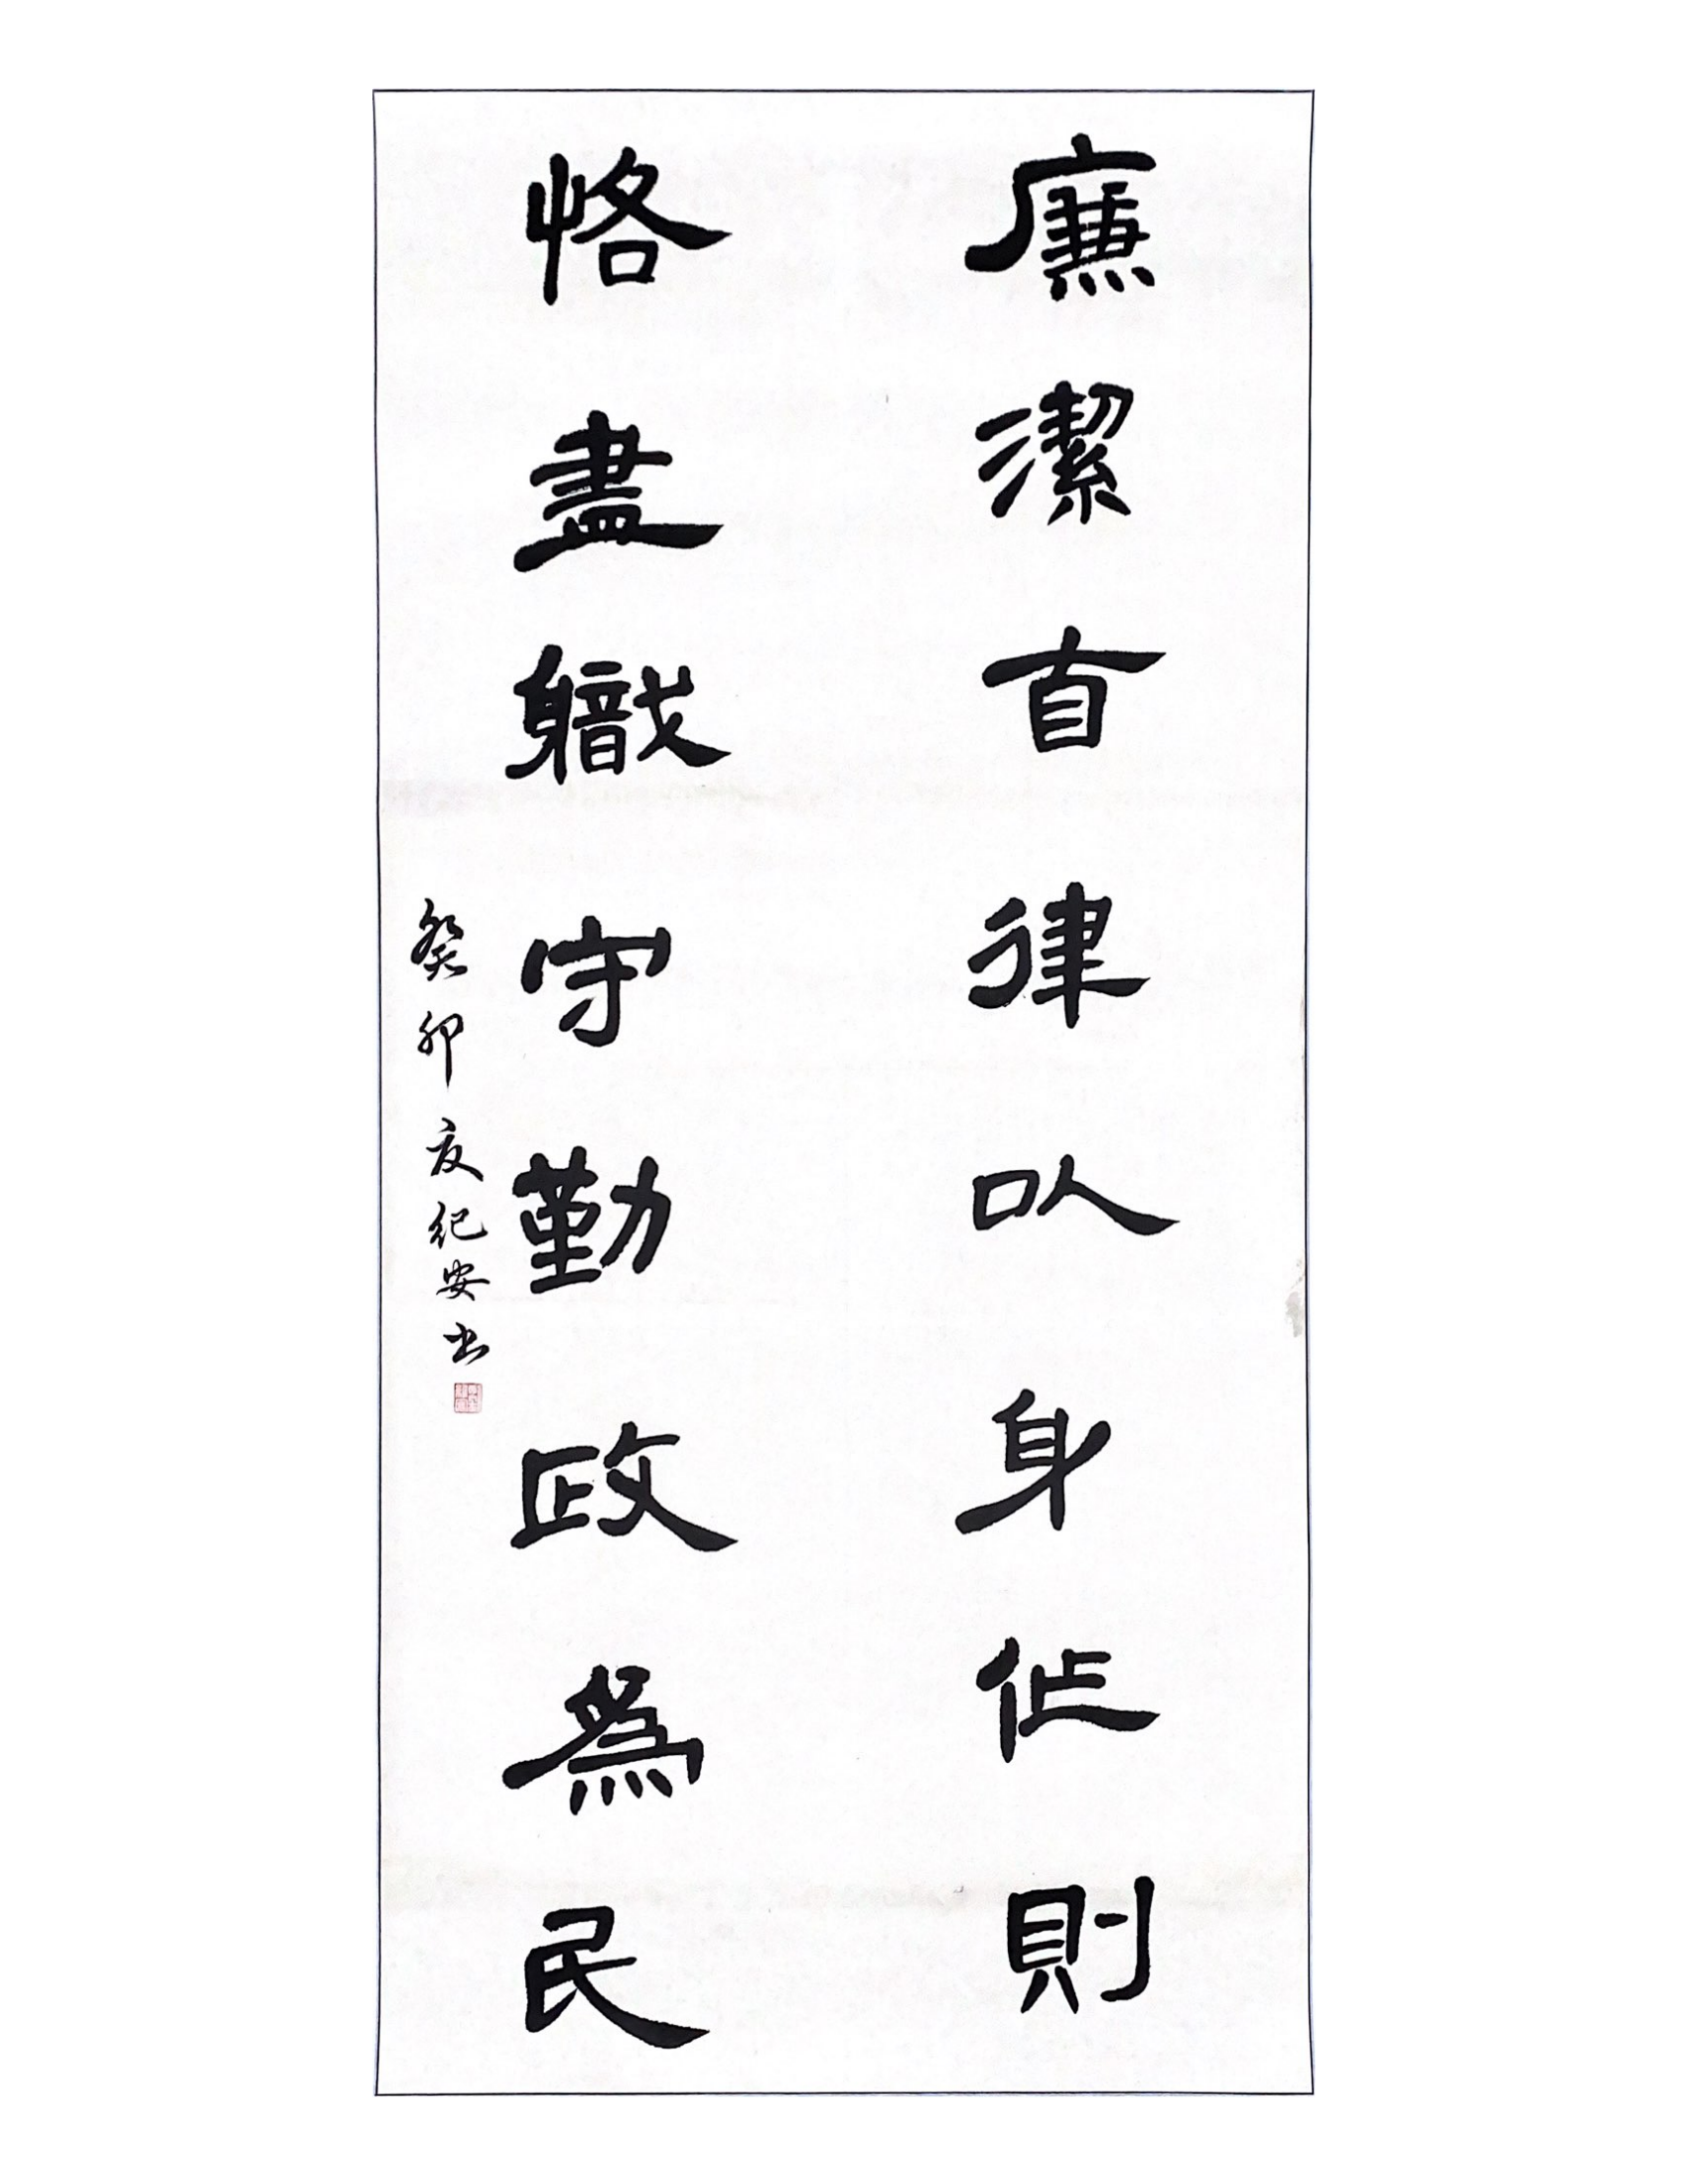 廉潔自律以身作則
恪盡職守勤政為民
癸卯夏纪安书